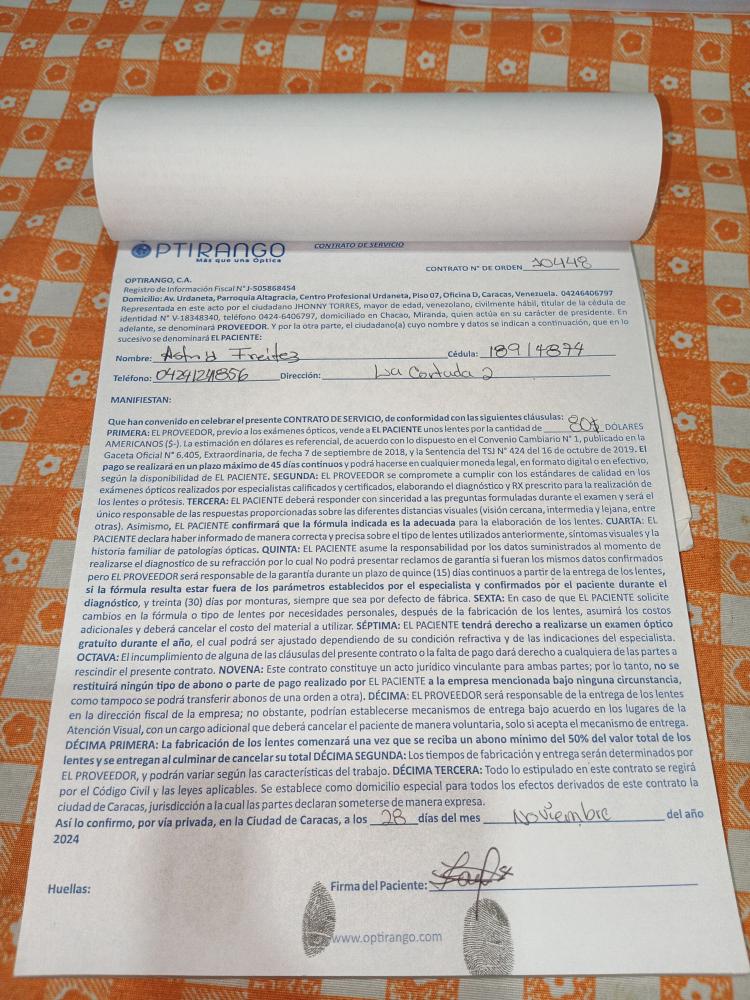 OPTIRANGO
Más que una Óptica
CONTRATO DE SERVICIO
CONTRATO N° DE ORDEN 10448
OPTIRANGO, C.A.
Registro de Información Fiscal N° J-505868454
Domicilio: Av. Urdaneta, Parroquia Altagracia, Centro Profesional Urdaneta, Piso 07, Oficina D, Caracas, Venezuela. 04246406797
Representada en este acto por el ciudadano JHONNY TORRES, mayor de edad, venezolano, civilmente hábil, titular de la cédula de
identidad N° V-18348340, teléfono 0424-6406797, domiciliado en Chacao, Miranda, quien actúa en su carácter de presidente. En
adelante, se denominará PROVEEDOR. Y por la otra parte, el ciudadano(a) cuyo nombre y datos se indican a continuación, que en lo
sucesivo se denominará EL PACIENTE:
Nombre: Freitez Cédula: 18914874
Teléfono: 04241241856 Dirección: La Cortada 2
MANIFIESTAN:
Que han convenido en celebrar el presente CONTRATO DE SERVICIO, de conformidad con las siguientes cláusulas:
PRIMERA: EL PROVEEDOR, previo a los exámenes ópticos, vende a EL PACIENTE unos lentes por la cantidad de 80$ DÓLARES
AMERICANOS ($-). La estimación en dólares es referencial, de acuerdo con lo dispuesto en el Convenio Cambiario N° 1, publicado en la
Gaceta Oficial N° 6.405, Extraordinaria, de fecha 7 de septiembre de 2018, y la Sentencia del TSJ N° 424 del 16 de octubre de 2019. El
pago se realizará en un plazo máximo de 45 días continuos y podrá hacerse en cualquier moneda legal, en formato digital o en efectivo,
según la disponibilidad de EL PACIENTE. SEGUNDA: EL PROVEEDOR se compromete a cumplir con los estándares de calidad en los
exámenes ópticos realizados por especialistas calificados y certificados, elaborando el diagnóstico y RX prescrito para la realización de
los lentes o prótesis. TERCERA: EL PACIENTE deberá responder con sinceridad a las preguntas formuladas durante el examen y será el
único responsable de las respuestas proporcionadas sobre las diferentes distancias visuales (visión cercana, intermedia y lejana, entre
otras). Asimismo, EL PACIENTE confirmará que la fórmula indicada es la adecuada para la elaboración de los lentes. CUARTA: EL
PACIENTE declara haber informado de manera correcta y precisa sobre el tipo de lentes utilizados anteriormente, síntomas visuales y la
historia familiar de patologías ópticas. QUINTA: EL PACIENTE asume la responsabilidad por los datos suministrados al momento de
realizarse el diagnostico de su refracción por lo cual No podrá presentar reclamos de garantía si fueran los mismos datos confirmados
pero EL PROVEEDOR será responsable de la garantía durante un plazo de quince (15) días continuos a partir de la entrega de los lentes,
si la fórmula resulta estar fuera de los parámetros establecidos por el especialista y confirmados por el paciente durante el
diagnóstico, y treinta (30) días por monturas, siempre que sea por defecto de fábrica. SEXTA: En caso de que EL PACIENTE solicite
cambios en la fórmula o tipo de lentes por necesidades personales, después de la fabricación de los lentes, asumirá los costos
adicionales y deberá cancelar el costo del material a utilizar. SÉPTIMA: EL PACIENTE tendrá derecho a realizarse un examen óptico
gratuito durante el año, el cual podrá ser ajustado dependiendo de su condición refractiva y de las indicaciones del especialista.
OCTAVA: El incumplimiento de alguna de las cláusulas del presente contrato o la falta de pago dará derecho a cualquiera de las partes a
rescindir el presente contrato. NOVENA: Este contrato constituye un acto jurídico vinculante para ambas partes; por lo tanto, no se
restituirá ningún tipo de abono o parte de pago realizado por EL PACIENTE a la empresa mencionada bajo ninguna circunstancia,
como tampoco se podrá transferir abonos de una orden a otra). DÉCIMA: EL PROVEEDOR será responsable de la entrega de los lentes
en la dirección fiscal de la empresa; no obstante, podrían establecerse mecanismos de entrega bajo acuerdo en los lugares de la
Atención Visual, con un cargo adicional que deberá cancelar el paciente de manera voluntaria, solo si acepta el mecanismo de entrega.
DÉCIMA PRIMERA: La fabricación de los lentes comenzará una vez que se reciba un abono mínimo del 50% del valor total de los
lentes y se entregan al culminar de cancelar su total DÉCIMA SEGUNDA: Los tiempos de fabricación y entrega serán determinados por
EL PROVEEDOR, y podrán variar según las características del trabajo. DÉCIMA TERCERA: Todo lo estipulado en este contrato se regirá
por el Código Civil y las leyes aplicables. Se establece como domicilio especial para todos los efectos derivados de este contrato la
ciudad de Caracas, jurisdicción a la cual las partes declaran someterse de manera expresa.
Así lo confirmo, por vía privada, en la Ciudad de Caracas, a los 28 días del mes Noviembre del año
2024
Huellas:
Firma del Paciente:
www.optirango.com